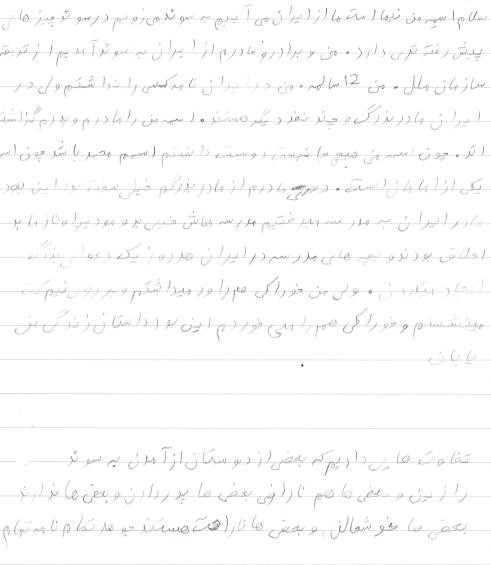 سلام اسم من نیما است ما از ایران می آییم به سوئد می رویم در سوئد چیز های
پیش رفته تری دارد . من و برادر و مادرم از ایران به سوئد آمدیم از طریق
سازمان ملل . من 12 سالمه . من در ایران نامه کسی را نداشتم ولی در
ایران مادر بزرگ و چند نفر دیگر هستند . اسم من را مادرم و پدرم گذاشت
اند . چون اسم منی هیچ جا نیست دوست داشتم اسمم محمد باشد چون اسم
یکی از امامان است . دوری مادرم از مادر بزرگم خیلی سخت بود این بود
مادر ایران به مدرسه میرفتیم مدرسه هاش خیلی بد بود
اخلاق بودند و بچه های مدرسه در ایران هر روز یک دعوای بزرگ
ایجاد میکردن . ولی من خوراکی هم را ور میداشتم و بر روی نیمکت
میتشستم و خوراکی هم را می خوردم این بود داستان زندگی من
پایان
تفاوت هایی داریم که بعضی از دوستان از آمدن به سوئد
رازین و بعضی ها هم ناراضی بعضی ها پدر دارن و بعضی ها ندارند
بعضی ها خوشحالن و بعضی ها ناراحت هستند تمام نامه تمام